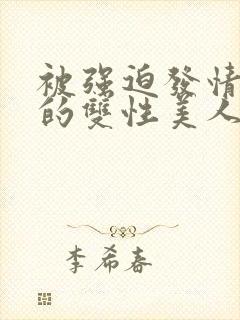 被强迫發情
的雙性美人
李希春